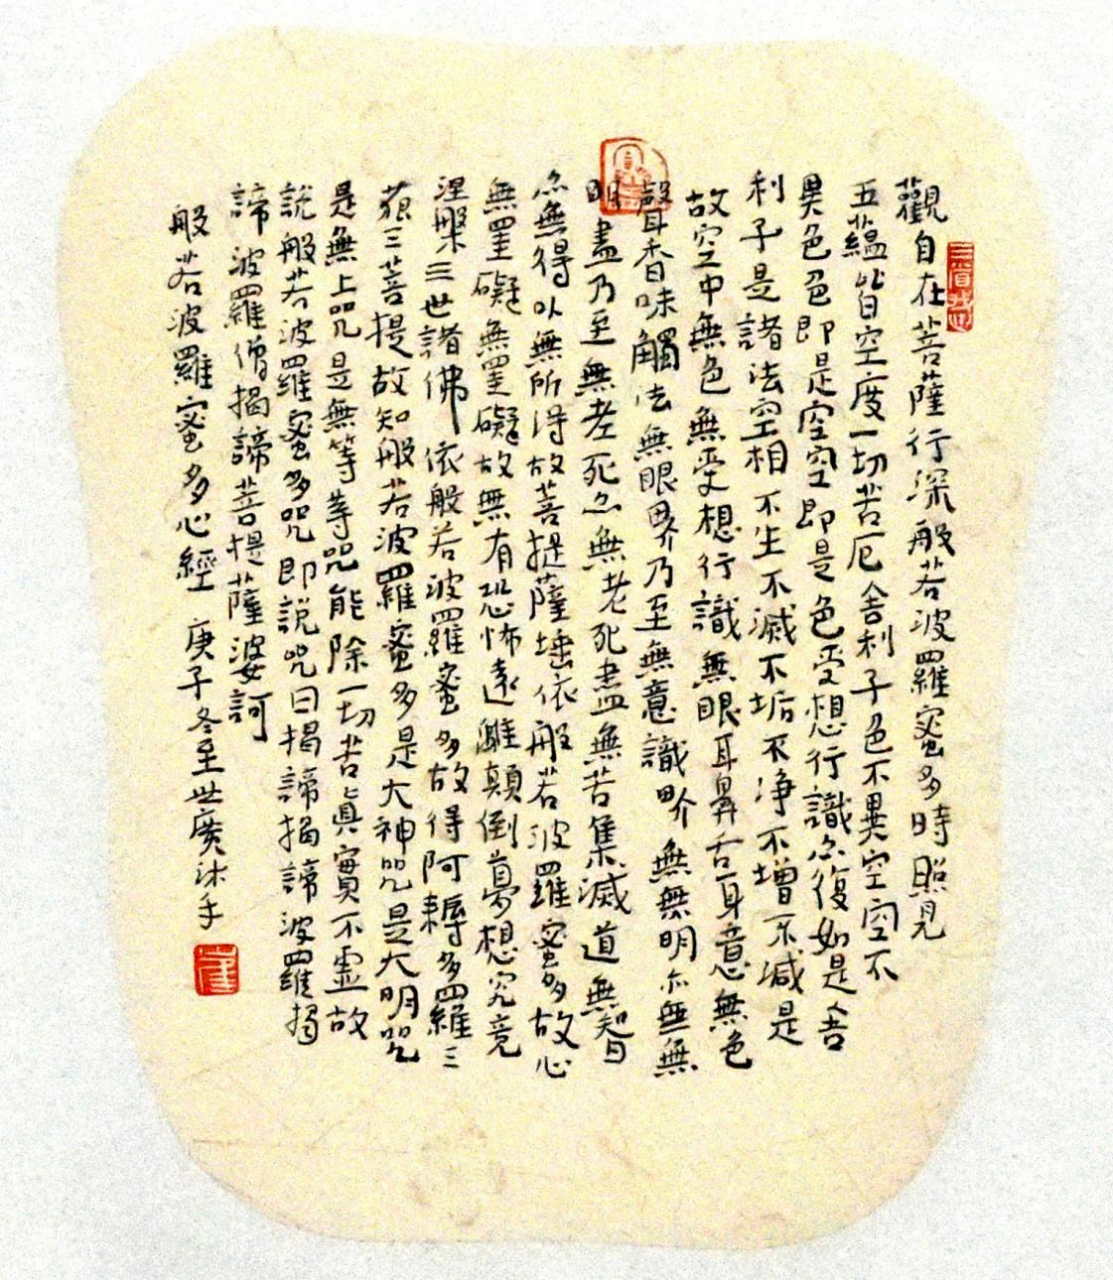 觀自在菩薩行深般若波羅蜜多時照見
五蘊皆空度一切苦厄舍利子色不異空空不
異色色即是空空即是色受想行識亦復如是舍
利子是諸法空相不生不滅不垢不淨不增不減是
故空中無色無受想行識無眼耳鼻舌身意無色
聲香味觸法無眼界乃至無意識界無無明亦無無
明盡乃至無老死亦無老死盡無苦集滅道無智
亦無得以無所得故菩提薩埵依般若波羅蜜多故心
無罣礙無罣礙故無有恐怖遠離顛倒夢想究竟
涅槃三世諸佛依般若波羅蜜多故得阿耨多羅三
藐三菩提故知般若波羅蜜多是大神咒是大明咒
是無上咒是無等等咒能除一切苦真實不虛故
說般若波羅蜜多咒即說咒曰揭諦揭諦波羅揭
諦波羅僧揭諦菩提薩婆訶
般若波羅蜜多心經 庚子冬至世廣沐手